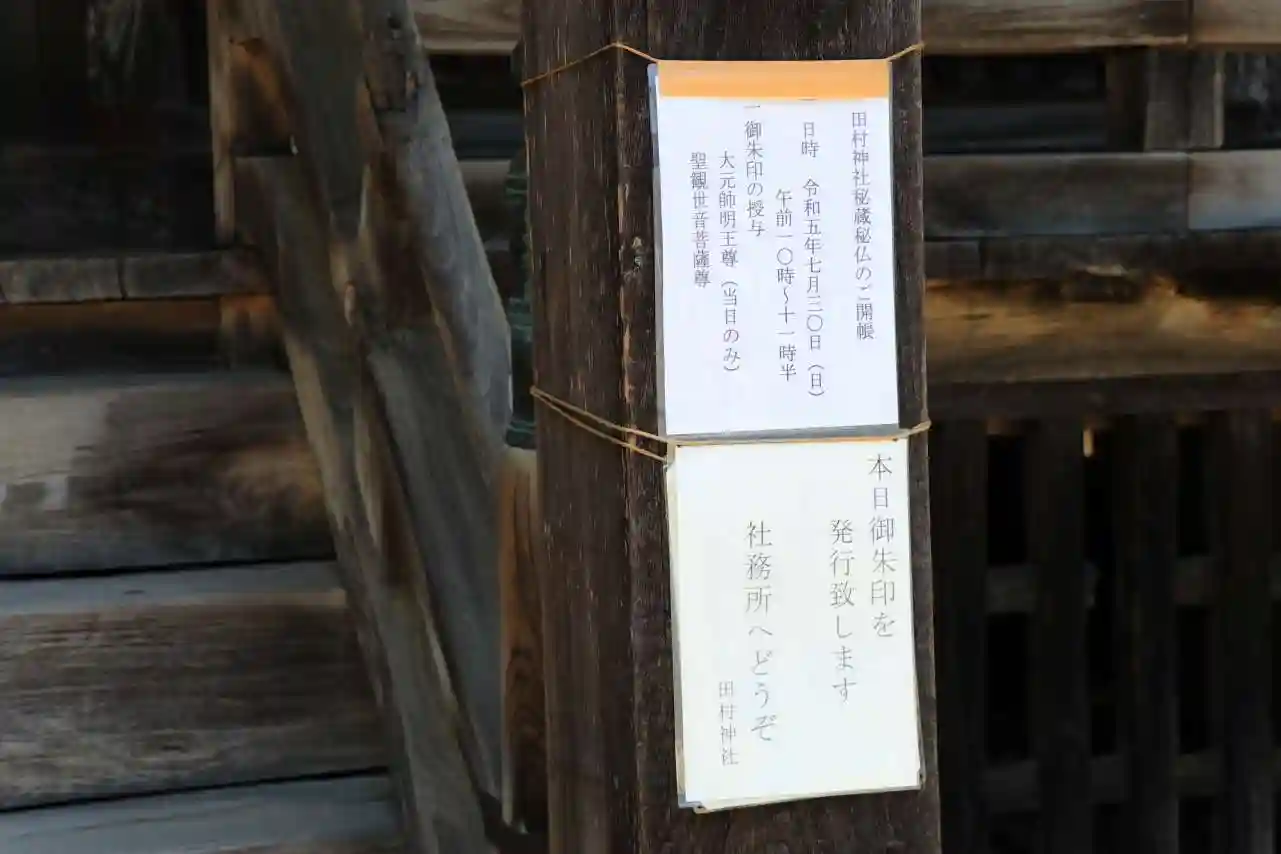 田村神社秘蔵秘仏のご開帳
一 日時 令和五年七月三〇日（日）
午前一〇時～十一時半
一 御朱印の授与
大元師明王尊（当日のみ）
聖観世音菩薩尊
本日御朱印を
発行致します
社務所へどうぞ
田村神社